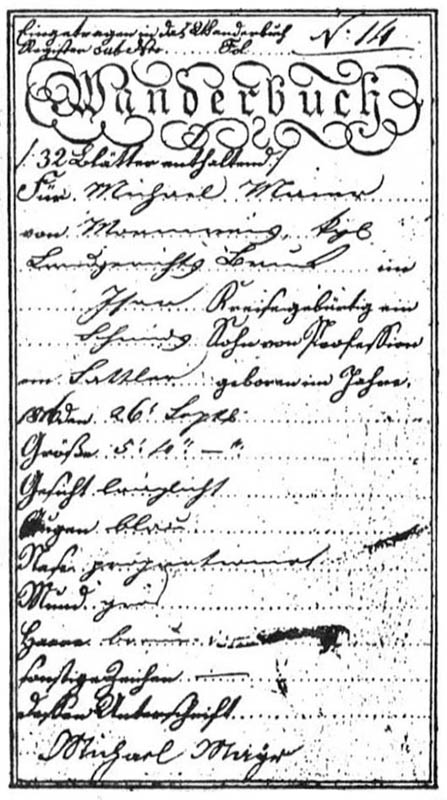 Eingetragen in das Wanderbuch
Register sub Nro ........ Fol. ........ No. 14
Wanderbuch
/: 32 Blätter enthaltend :/
Für Michael Maier
von kgl
Landgerichts Bruck im
Isar Kreise gebürtig ein
Schmids Sohn von Profession
ein Sattler geboren im Jahre
den 26t Septb
Größe 5' 4" — "'
Gesicht länglicht
Augen blau
Nase proportionirt
Mund
Haare braun
sonstige Zeichen —
dessen Unterschrift
Michael Mayr